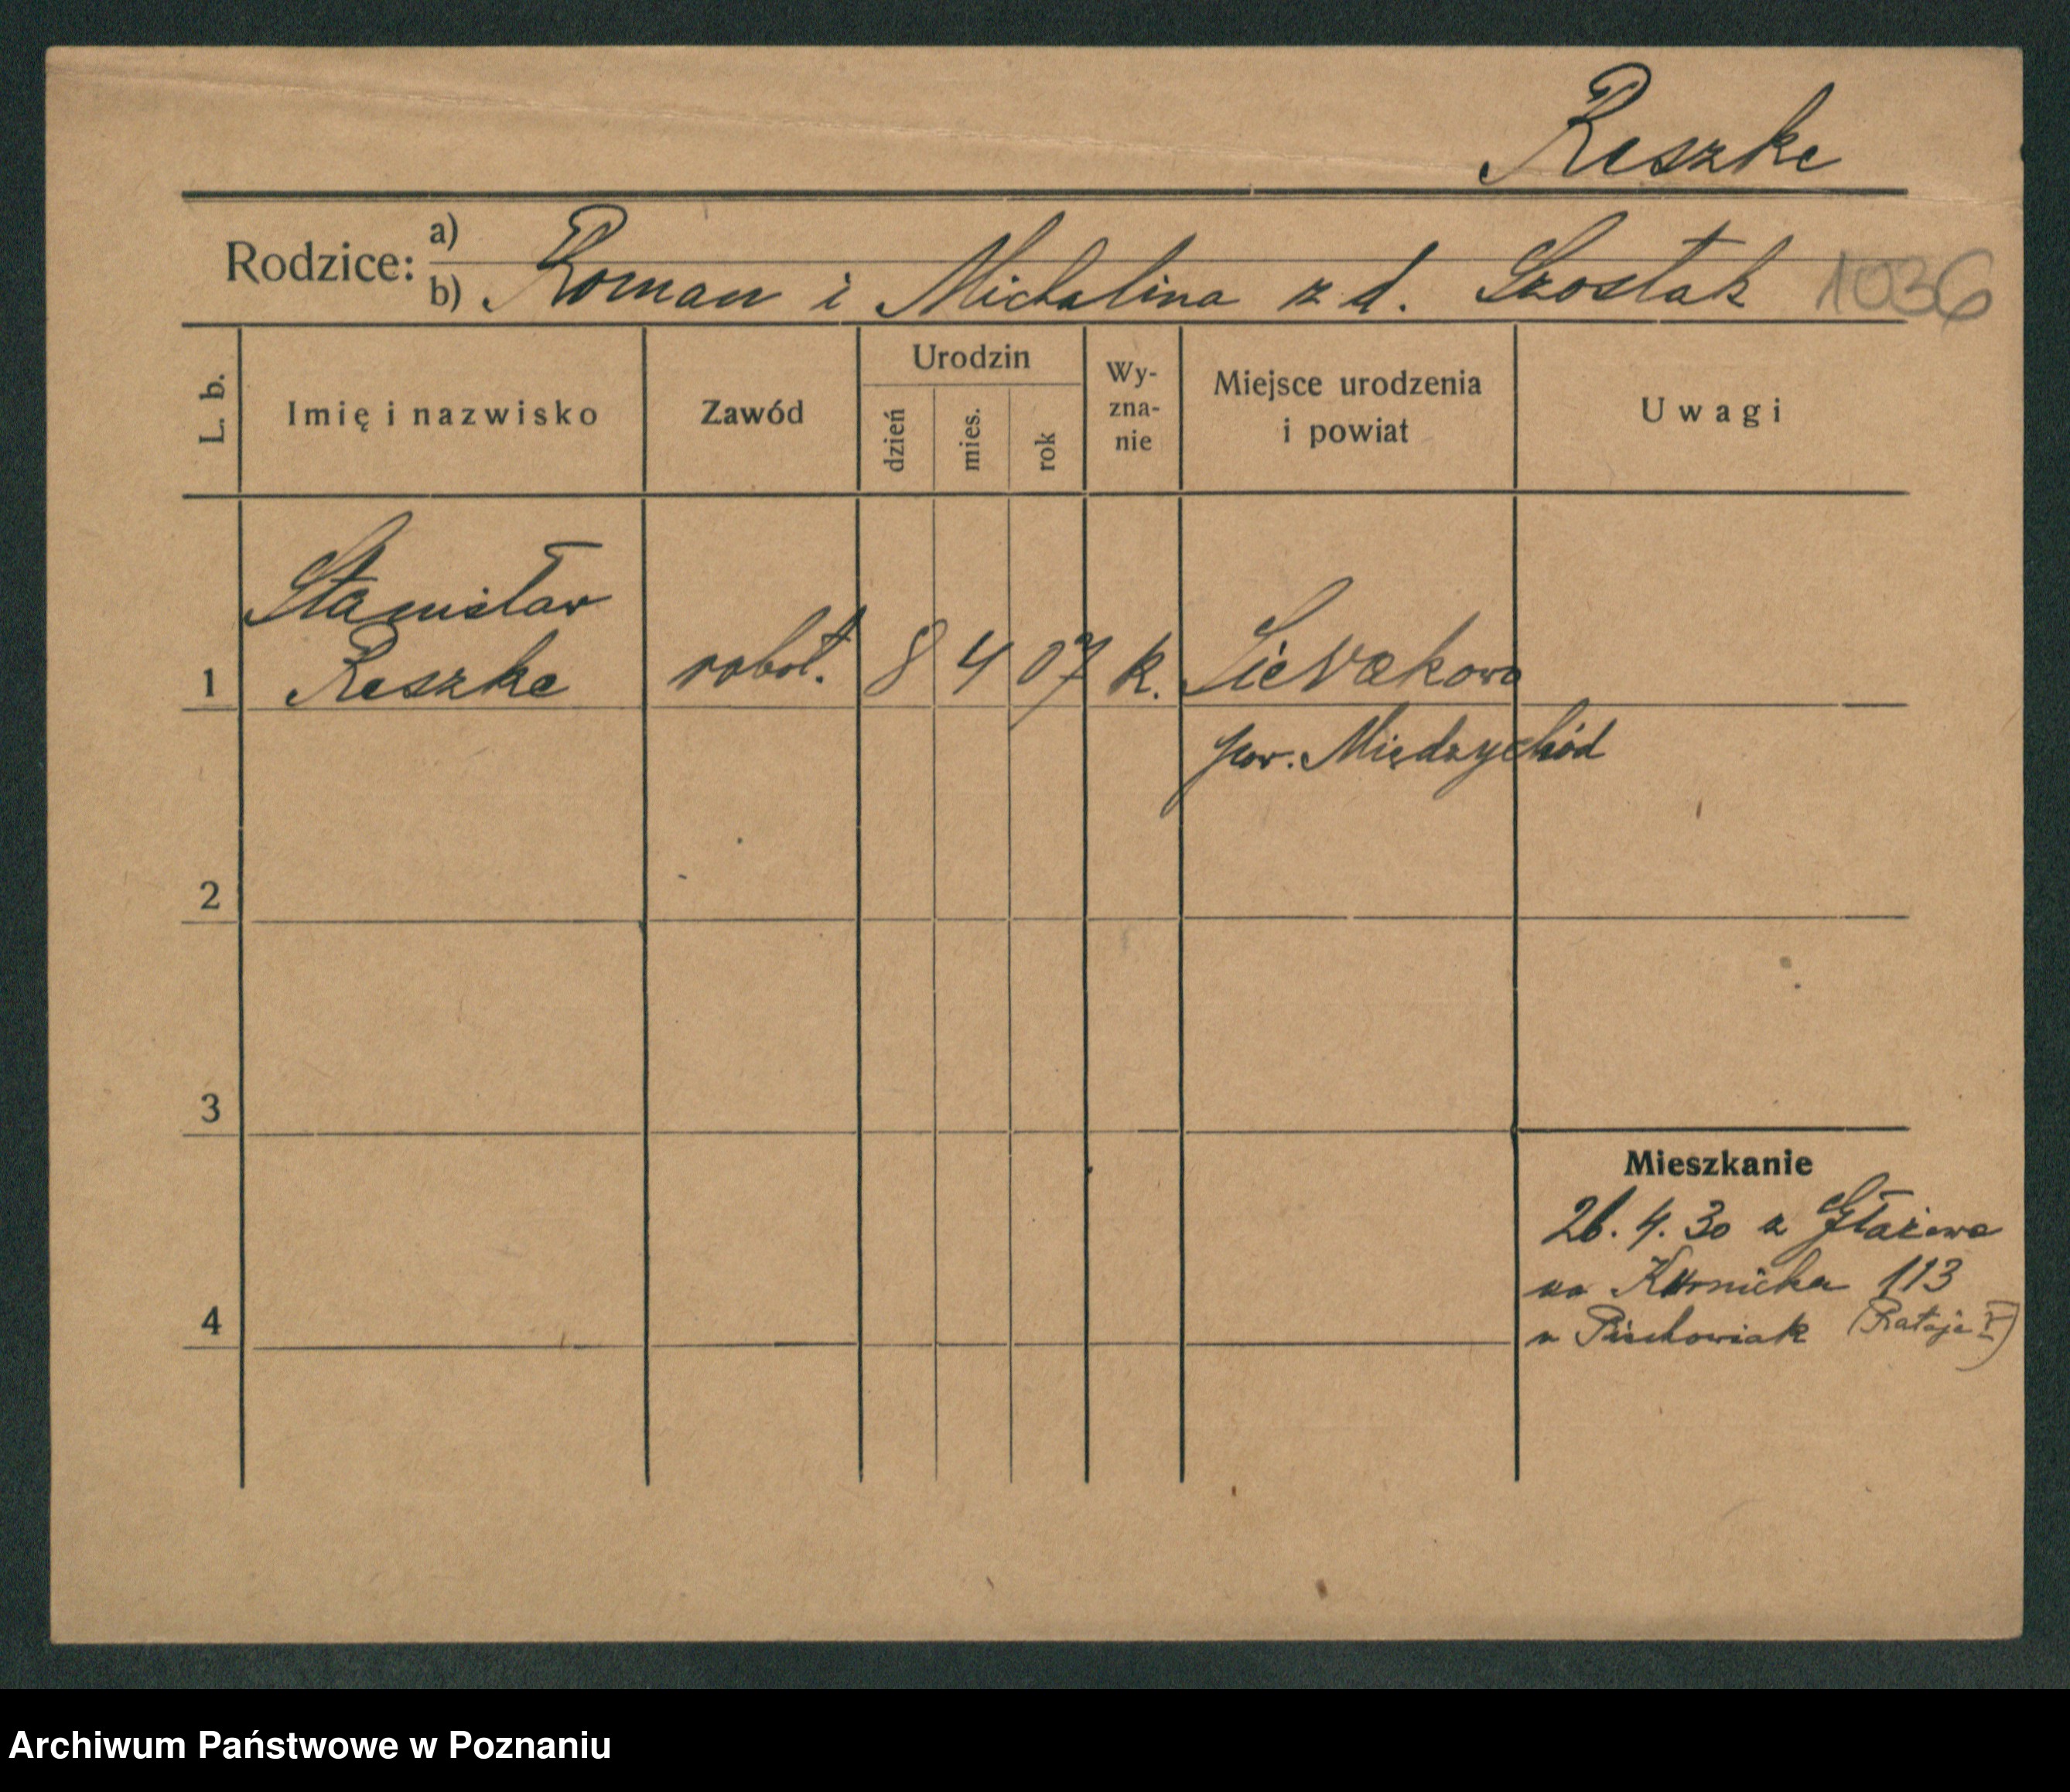 Reszke
Rodzice: a)
b) Roman i Michalina z d. Szostak 1036
L. b. Imię i nazwisko Zawód Urodzin dzień mies. rok Wy-zna-nie Miejsce urodzenia i powiat Uwagi
Stanisław
1 Reszke robot. 8 4 07 k.
pow. Międzychód
2
3
Mieszkanie
26. 4. 30 z
113
4 (Rataje
Archiwum Państwowe w Poznaniu